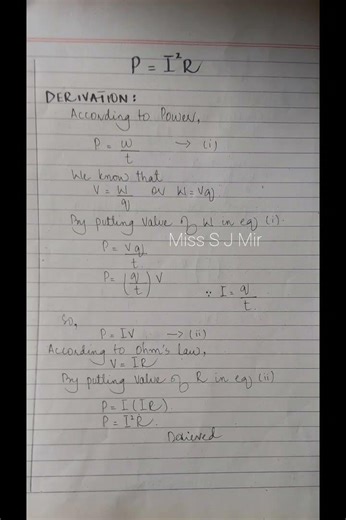 P = I²R
DERIVATION:
According to Power,
P = W/t → (i)
We know that
V = W/q or W = Vq
By putting value of W in eq (i).
Miss S J Mir
P = Vq/t
P = (q/t) V ∵ I = q/t.
So,
P = IV → (ii)
According to Ohm's Law,
V = IR
By putting value of R in eq (ii)
P = I (IR)
P = I²R.
Derived